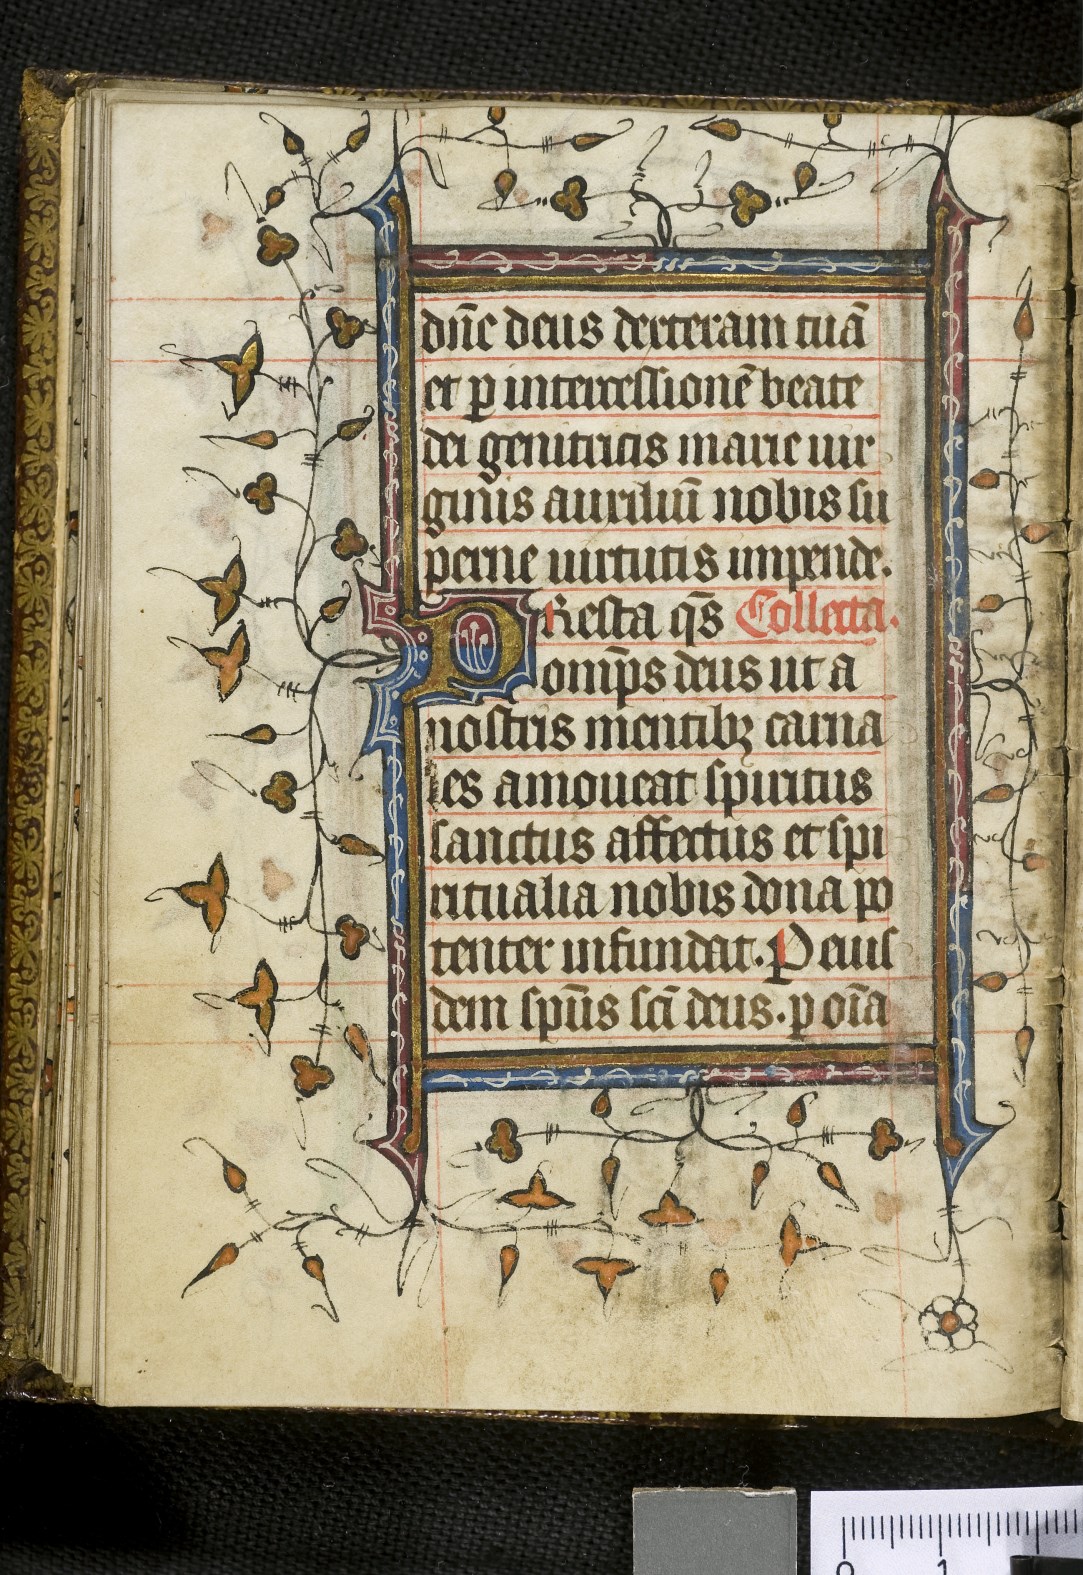 dn̄e deus dexteram tuā
et ꝑ intercessionē beate
dei genitricis marie uir
ginis auxiliū nobis su
perne uirtutis impende.
PResta q̄s Collecta.
omīps deus ut a
nostris mentibꝫ carna
les amoueat spiritus
sanctus affectus et spi
ritualia nobis dona po
tenter infundat. P eius
dem sp̄us sc̄i deus. p oīa
0 1